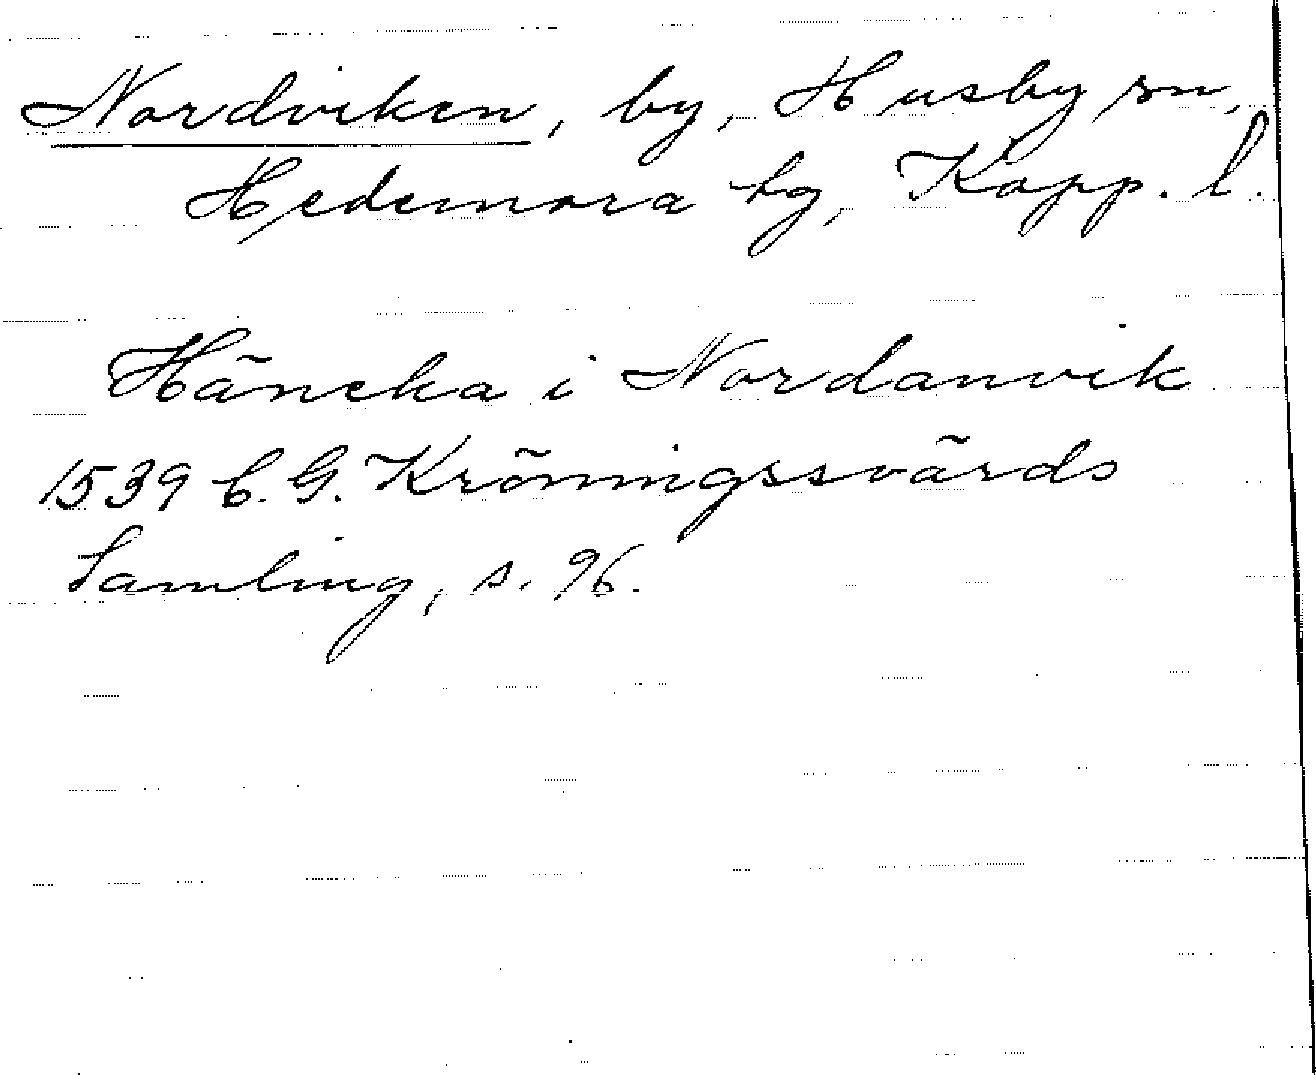 Nordviken, by, Husby sn,
Hedemora tg, Kopp. l.
Häncka i Nordanvik
1539 C. G. Kröningssvärds
Samling, s. 96.